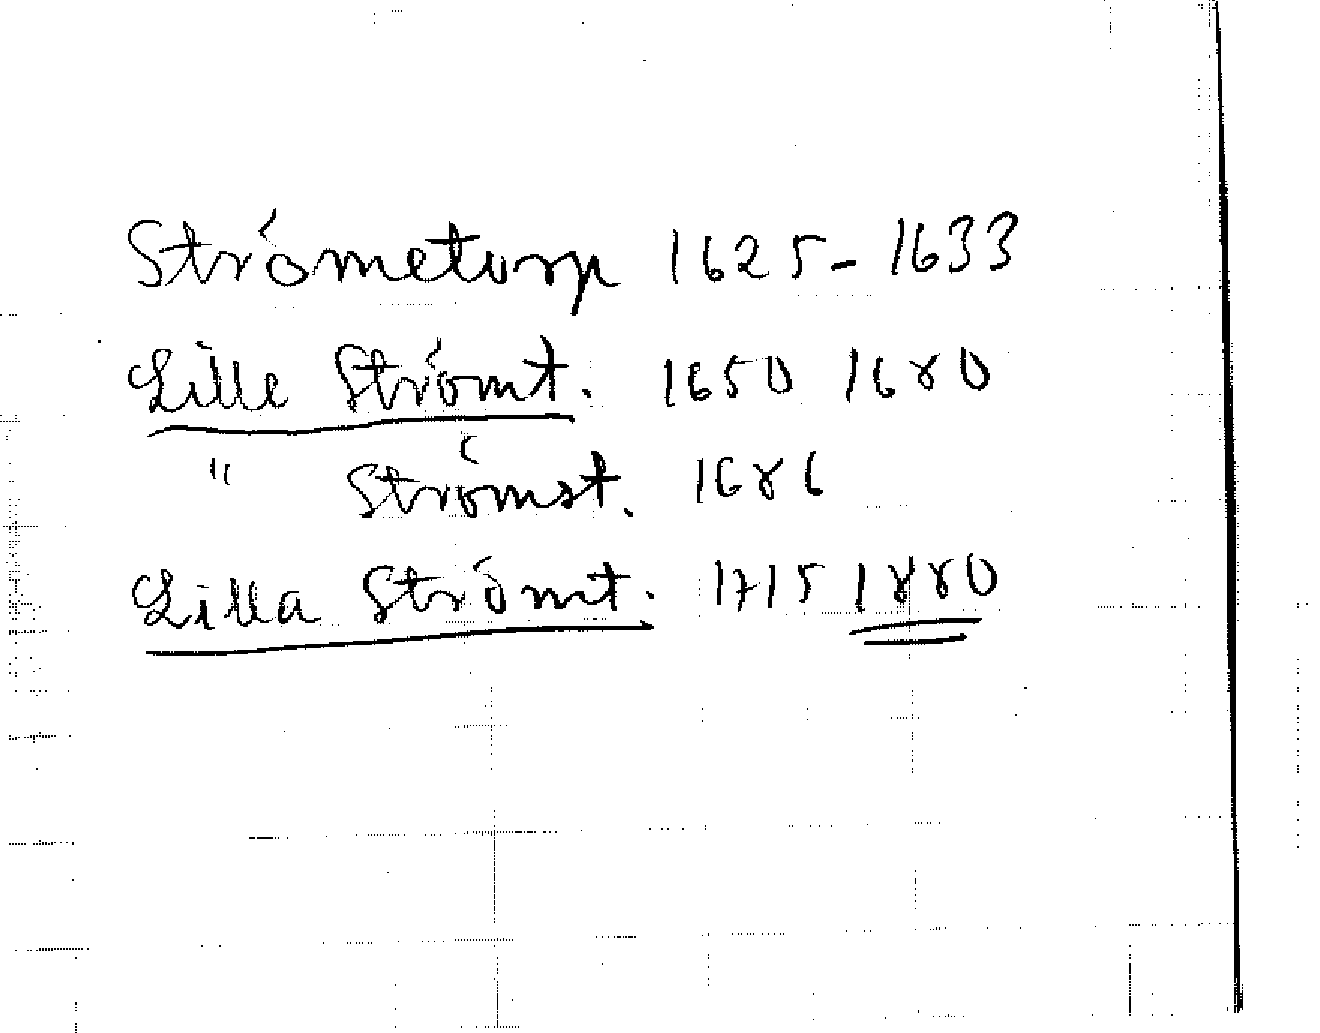 Strömetorp 1625-1633
Lille Strömt. 1650 1680
" Strömst. 1686
Lilla Strömt. 1715 1880